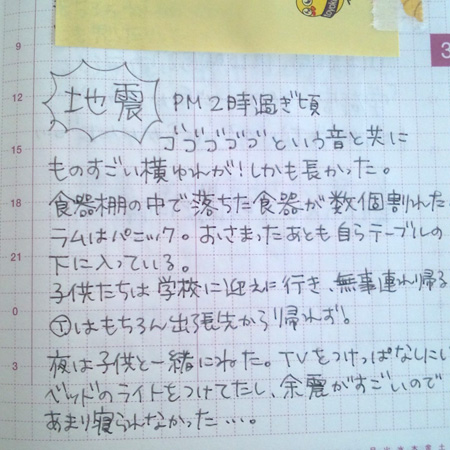 地震 PM2時過ぎ頃
ゴゴゴゴゴという音と共に
ものすごい横ゆれが!しかも長かった。
食器棚の中で落ちた食器が数個割れた。
ラムはパニック。おさまったあとも自らテーブルの
下に入っている。
子供たちは学校に迎えに行き、無事連れ帰る
Ⓣはもちろん出張先から帰れず。
夜は子供と一緒にねた。TVをつけっぱなしにし
ベッドのライトをつけてたし、余震がすごいので
あまり寝られなかった…。
3
9
12
15
18
21
0
3